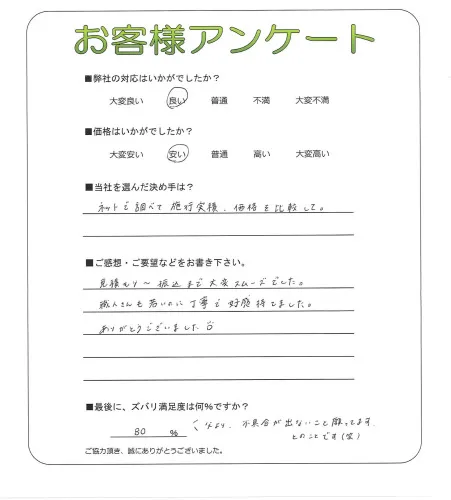 お客様アンケート
■弊社の対応はいかがでしたか?
大変良い 良い 普通 不満 大変不満
■価格はいかがでしたか?
大変安い 安い 普通 高い 大変高い
■当社を選んだ決め手は?
ネットで調べて 施行実積、価格を比較して。
■ご感想・ご要望などをお書き下さい。
見積もり～振込まで大変スムーズでした。
職人さんも若いのに丁寧で好感持てました。
ありがとうございました
■最後に、ズバリ満足度は何%ですか?
80 %
不具合が出ないこと願ってます。
とのことです(笑)
ご協力頂き、誠にありがとうございました。